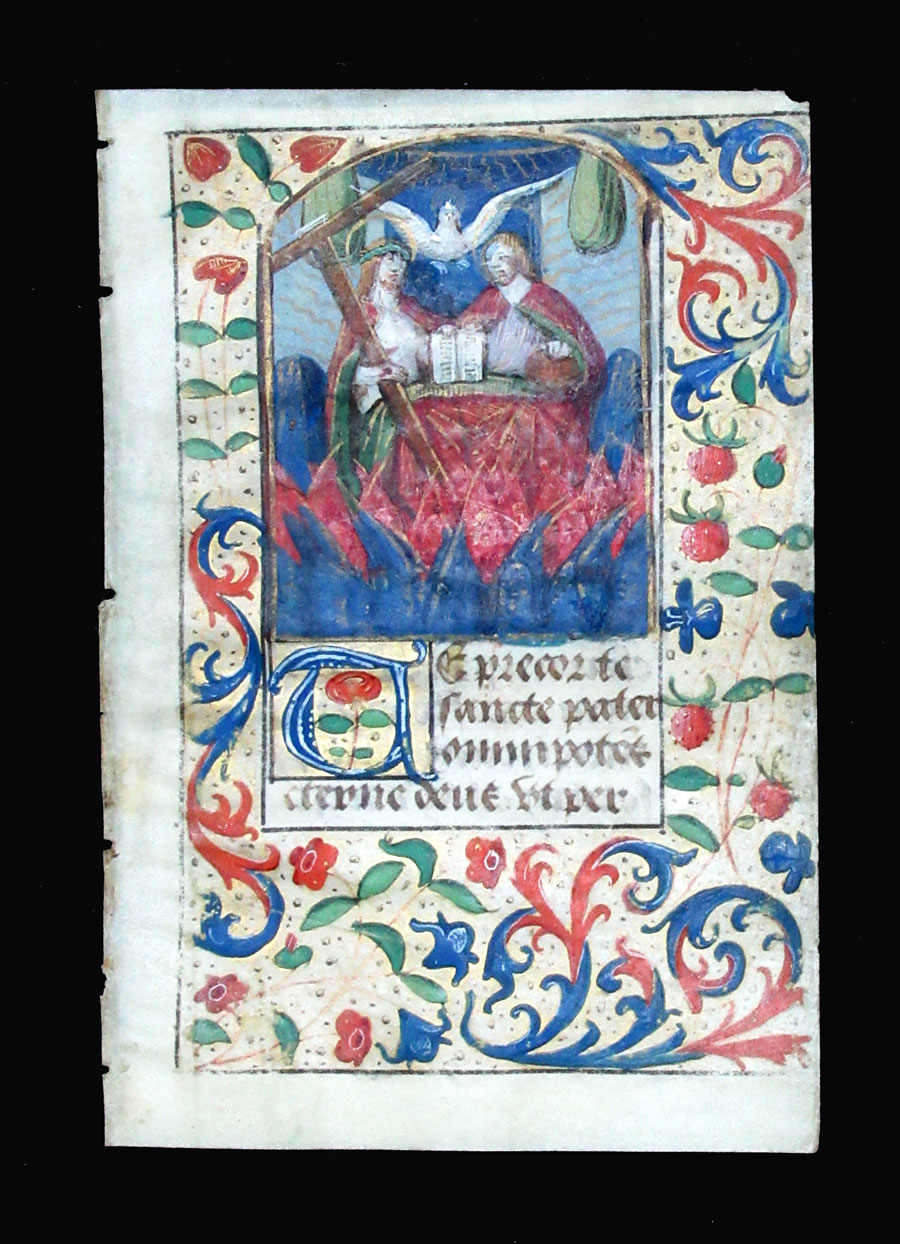 TE precor te
sancte pater
omnipotēs
eterne deus vt per